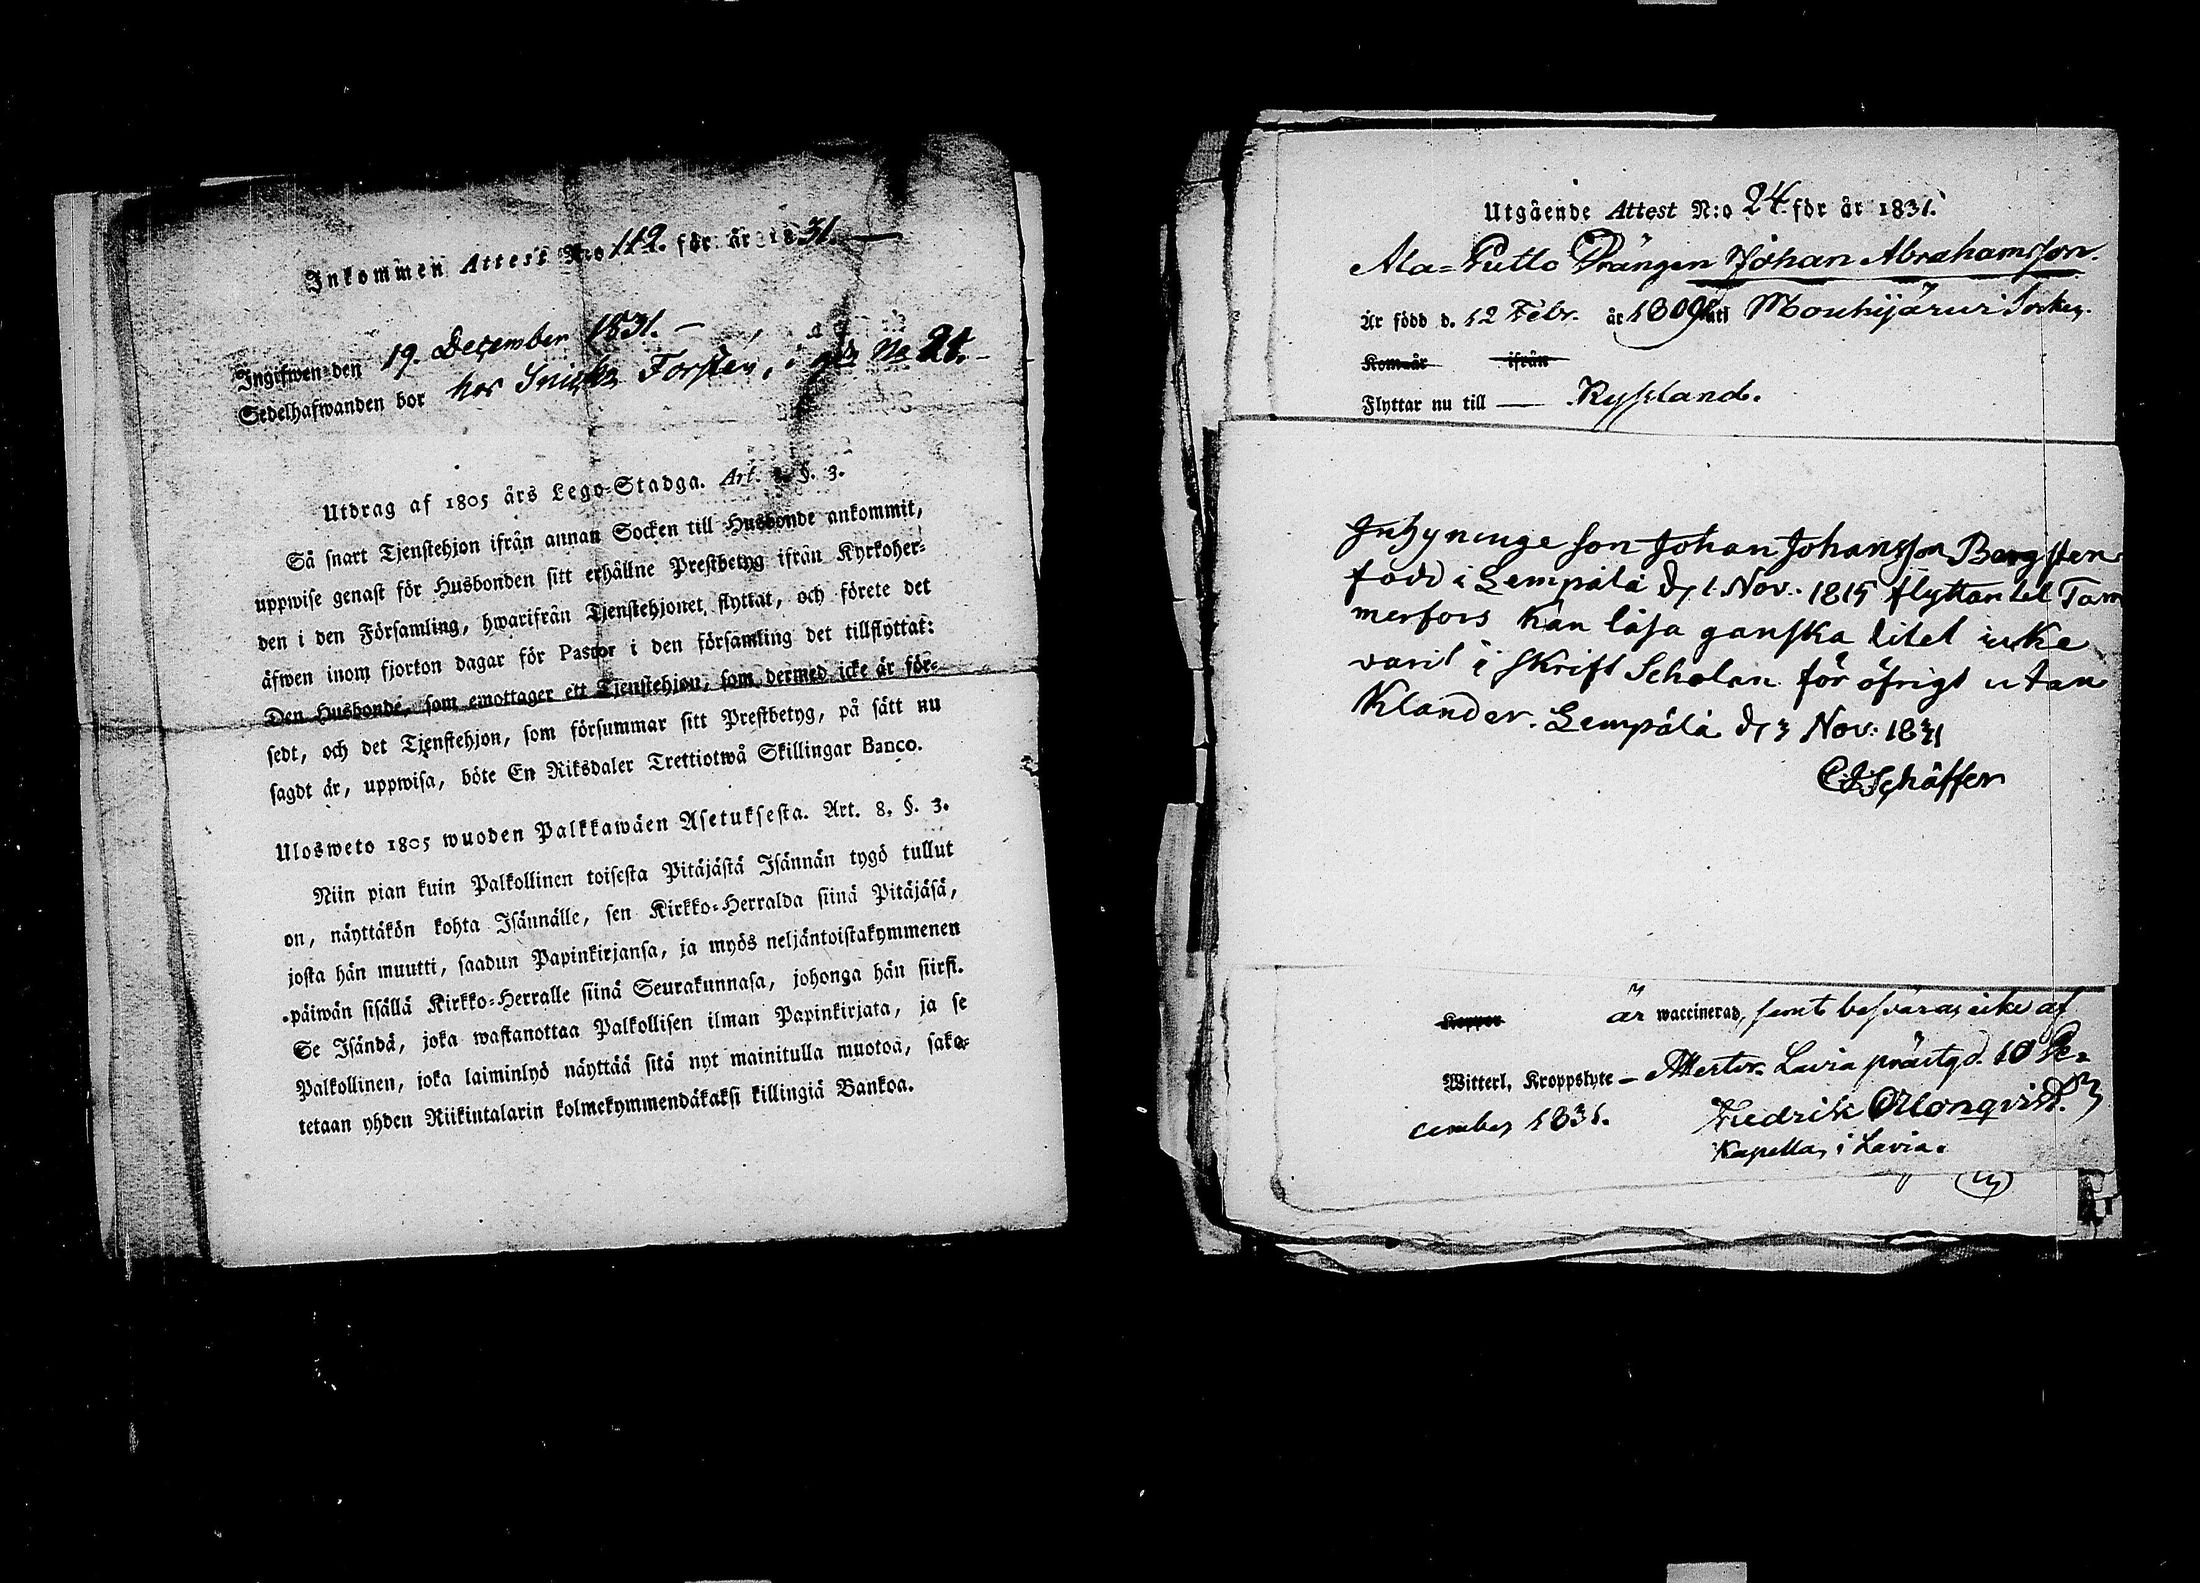 Inkommen Attest N:o 112. för år 1831.
Ingifwen den 19. December 1831.
Sedelhafwanden bor hos Snick. Forstén, i går No 24.
Utdrag af 1805 års Lego-Stadga. Art. 8. §. 3.
Så snart Tjenstehjon ifrån annan Socken till Husbonde ankommit,
uppwise genast för Husbonden sitt erhållne Prestbetyg ifrån Kyrkoher-
den i den Församling, hwarifrån Tjenstehjonet flyttat, och förete det
äfwen inom fjorton dagar för Pastor i den församling det tillflyttat:
Den Husbonde, som emottager ett Tjenstehjon, som dermed icke är för-
sedt, och det Tjenstehjon, som försummar sitt Prestbetyg, på sätt nu
sagdt är, uppwisa, böte En Riksdaler Trettiotwå Skillingar Banco.
Ulosweto 1805 wuoden Palkkawäen Asetuksesta. Art. 8. §. 3.
Niin pian kuin Palkollinen toisesta Pitäjästä Isännän tygö tullut
on, näyttäkön kohta Isännälle, sen Kirkko-Herralda siinä Pitäjäsä,
josta hän muutti, saadun Papinkirjansa, ja myös neljäntoistakymmenen
päiwän sisällä Kirkko-Herralle siinä Seurakunnasa, johonga hän siirsi.
Se Isändä, joka wastanottaa Palkollisen ilman Papinkirjata, ja se
Palkollinen, joka laiminlyö näyttää sitä nyt mainitulla muotoa, sako-
tetaan yhden Riikintalarin kolmekymmendäkaksi killingiä Bankoa.
Utgående Attest N:o 24. för år 1831.
Ala-Putto Drängen Johan Abrahamsson.
Är född d. 12 Febr. år 1809 uti Mouhijärvi Socken.
Kom år ifrån
Flyttar nu till — Ryssland.
Inhysinge son Johan Johansson Bergsten
född i Lempälä d. 1 Nov. 1815 flyttar til Tam
merfors kan läsa ganska litet icke
varit i Skrift Scholan för öfrigt utan
Klander. Lempälä d. 3 Nov: 1831
C J Schäffer
Koppor är waccinerad, samt besväras icke af
Witterl. Kroppslyte – Attester. Lavia prästgd. 10 De-
cember 1831. Fredrik Holmqvist.
Kapellan i Lavia.